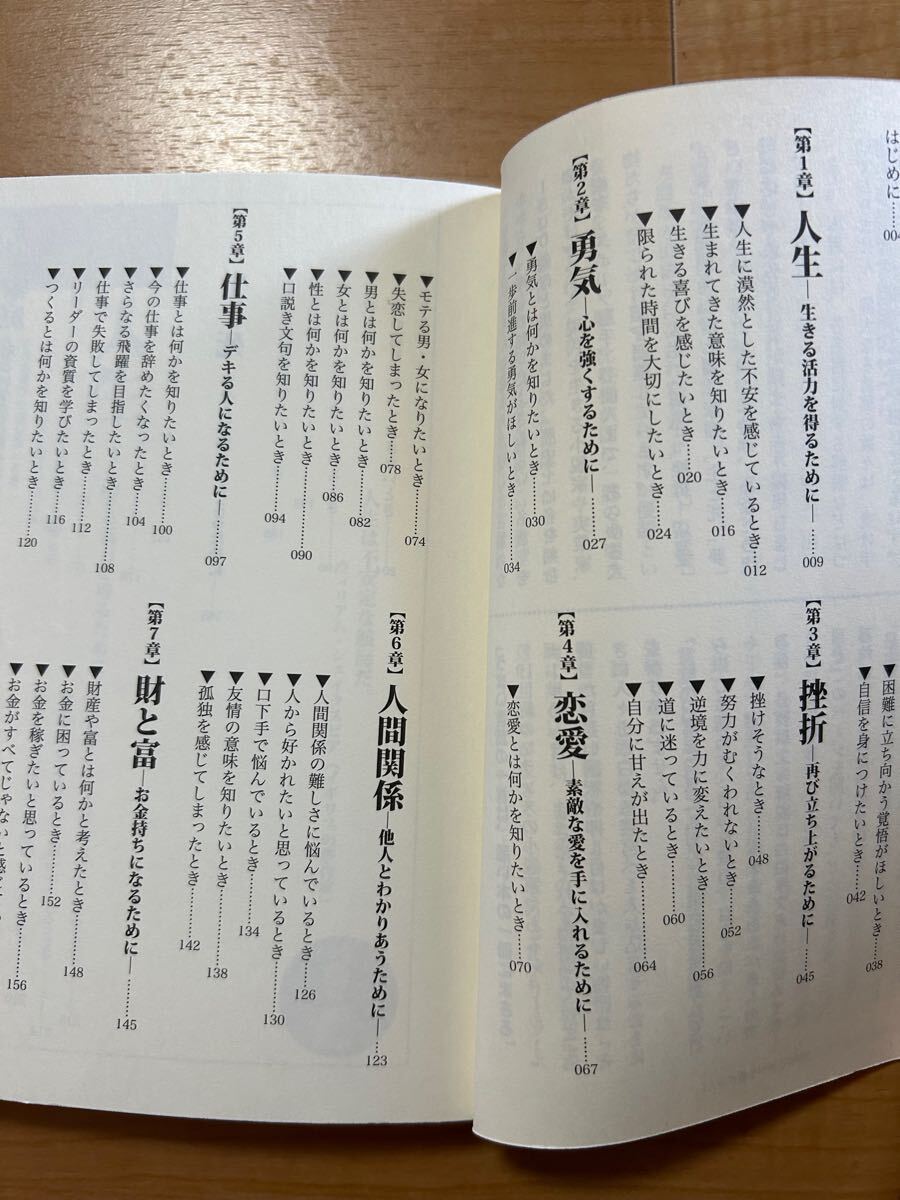 はじめに……004
【第1章】人生―生きる活力を得るために―……009
▼人生に漠然とした不安を感じているとき……012
▼生まれてきた意味を知りたいとき……016
▼生きる喜びを感じたいとき……020
▼限られた時間を大切にしたいとき……024
【第2章】勇気―心を強くするために―……027
▼勇気とは何かを知りたいとき……030
▼一歩前進する勇気がほしいとき……034
▼困難に立ち向かう覚悟がほしいとき……038
▼自信を身につけたいとき……042
【第3章】挫折―再び立ち上がるために―……045
▼挫けそうなとき……048
▼努力がむくわれないとき……052
▼逆境を力に変えたいとき……056
▼道に迷っているとき……060
▼自分に甘えが出たとき……064
【第4章】恋愛―素敵な愛を手に入れるために―……067
▼恋愛とは何かを知りたいとき……070
▼モテる男・女になりたいとき……074
▼失恋してしまったとき……078
▼男とは何かを知りたいとき……082
▼女とは何かを知りたいとき……086
▼性とは何かを知りたいとき……090
▼口説き文句を知りたいとき……094
【第5章】仕事―デキる人になるために―……097
▼仕事とは何かを知りたいとき……100
▼今の仕事を辞めたくなったとき……104
▼さらなる飛躍を目指したいとき……108
▼仕事で失敗してしまったとき……112
▼リーダーの資質を学びたいとき……116
▼つくるとは何かを知りたいとき……120
【第6章】人間関係―他人とわかりあうために―……123
▼人間関係の難しさに悩んでいるとき……126
▼人から好かれたいと思っているとき……130
▼口下手で悩んでいるとき……134
▼友情の意味を知りたいとき……138
▼孤独を感じてしまったとき……142
【第7章】財と富―お金持ちになるために―……145
▼財産や富とは何かと考えたとき……148
▼お金に困っているとき……152
▼お金を稼ぎたいと思っているとき……156
▼お金がすべてじゃないと感じ